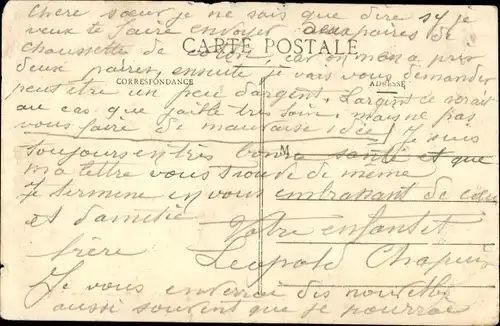 chère sœur je ne sais que dire si je
veux te faire envoyer deux paires de
CARTE POSTALE
chaussette de coton, car on m'en a pris
deux paires, ensuite je vais vous demander
CORRESPONDANCE
ADRESSE
peut être un peu d'argent. L'argent ce serait
au cas que j'aille très loin, mais ne pas
vous faire de mauvaise idée! Je suis
toujours en très bonne santé et que
M
ma lettre vous trouve de même
Je termine en vous embrassant de cœur
et d'amitié
Votre enfant et
frère
Léopold Chapuis
Je vous enverrai des nouvelles
aussi souvent que je pourrai